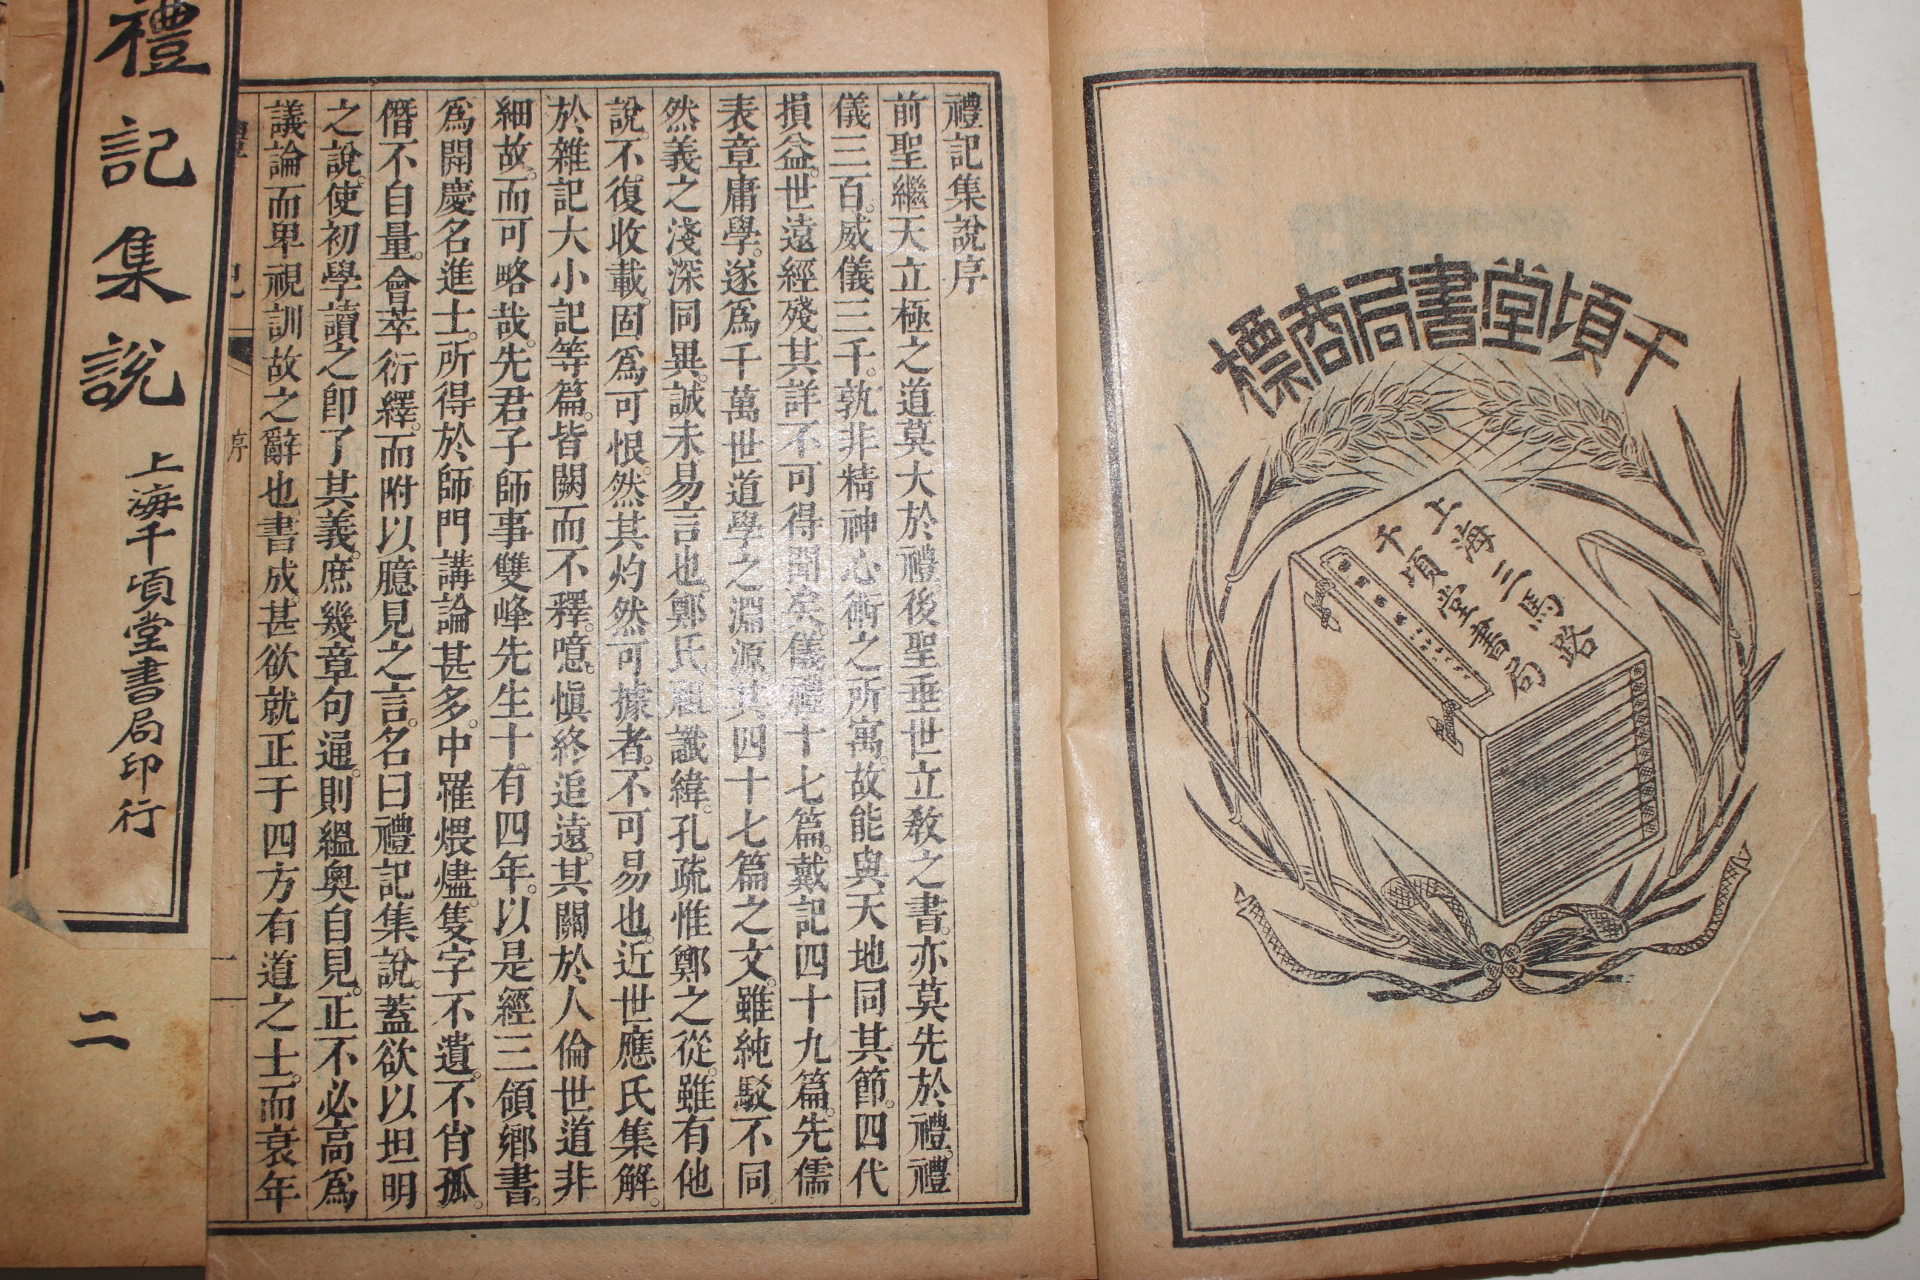 千頃堂書局商標
上海三馬路
千頃堂書局
禮記集說序
前聖繼天立極之道莫大於禮後聖垂世立教之書亦莫先於禮禮
儀三百威儀三千孰非精神心術之所寓故能與天地同其節四代
損益世遠經殘其詳不可得聞矣儀禮十七篇戴記四十九篇先儒
表章庸學遂爲千萬世道學之淵源其四十七篇之文雖純駁不同
然義之淺深同異誠未易言也鄭氏祖讖緯孔疏惟鄭之從雖有他
說不復收載固爲可恨然其灼然可據者不可易也近世應氏集解
於雜記大小記等篇皆闕而不釋噫愼終追遠其關於人倫世道非
細故而可略哉先君子師事雙峰先生十有四年以是經三領鄉書
爲開慶名進士所得於師門講論甚多中罹煨燼隻字不遺不肖孤
僭不自量會萃衍繹而附以臆見之言名曰禮記集說蓋欲以坦明
之說使初學讀之即了其義庶幾章句通則縕奧自見正不必高爲
議論而卑視訓故之辭也書成甚欲就正于四方有道之士而衰年
序
一
禮記集說
上海千頃堂書局印行
二